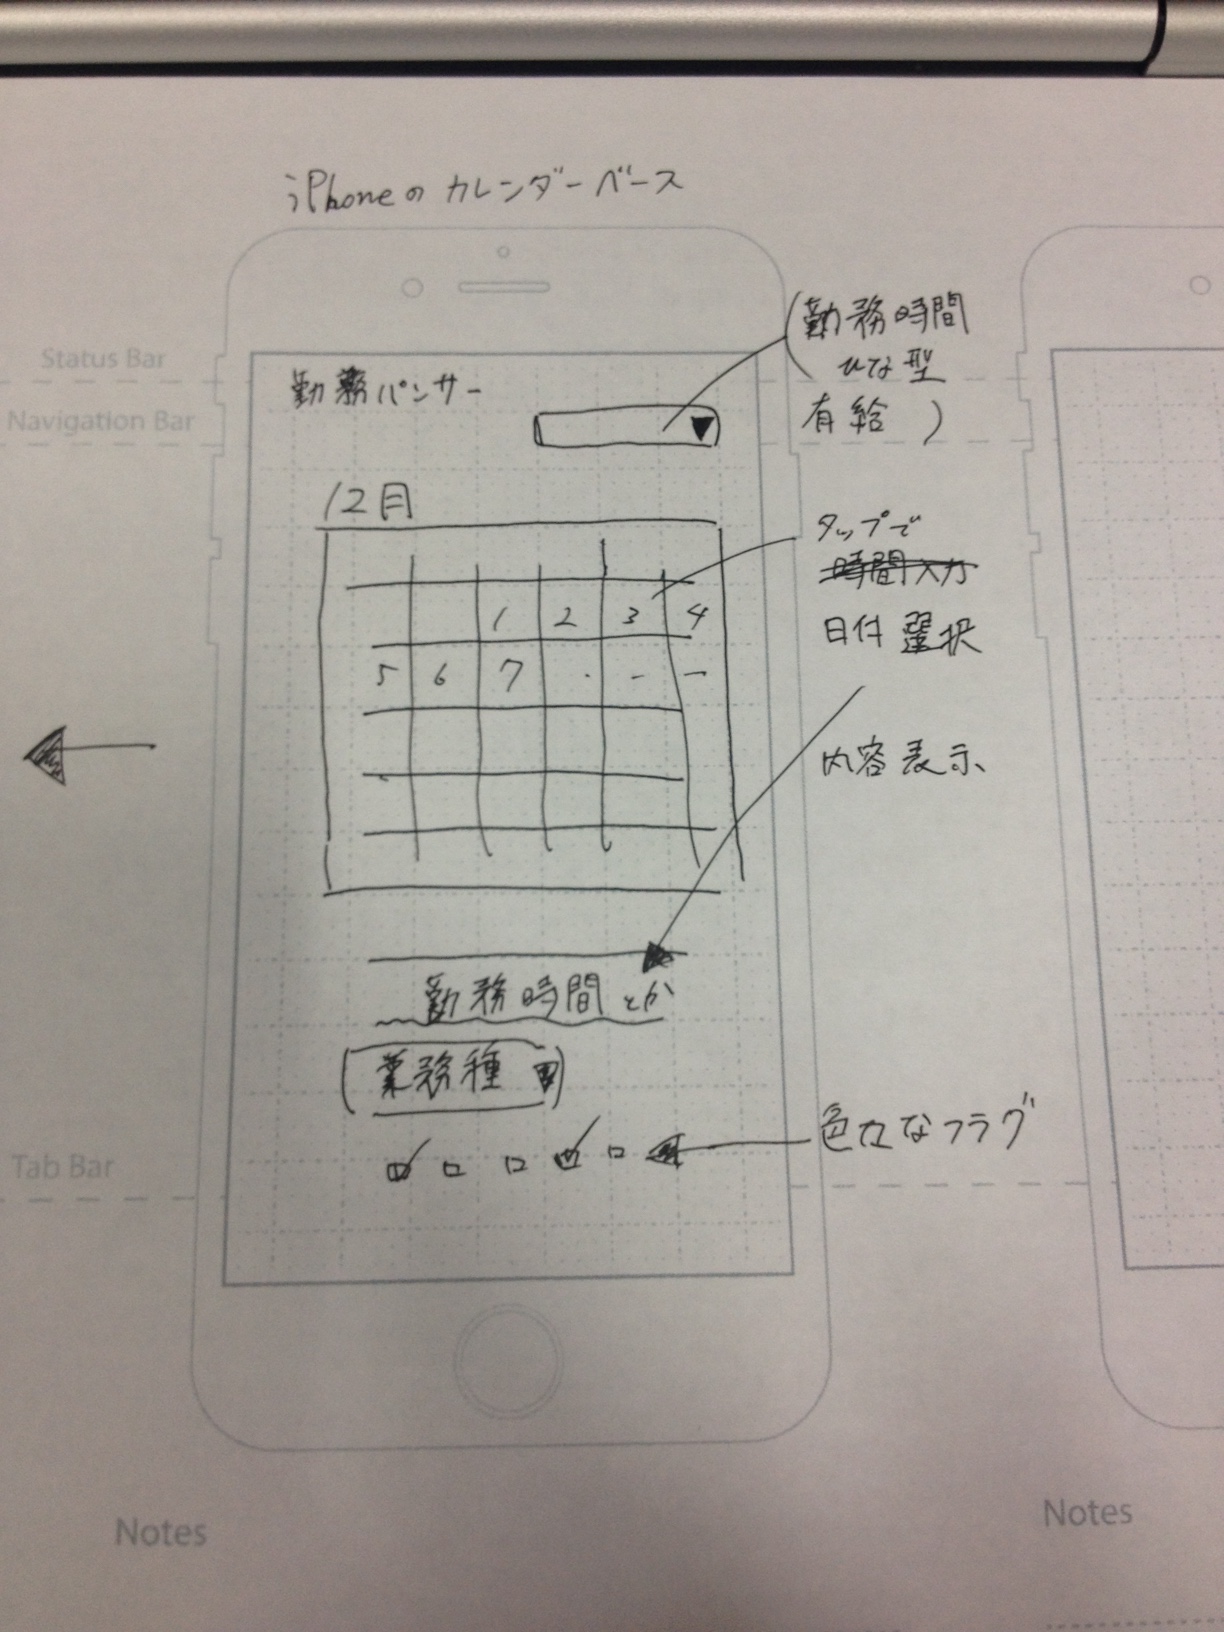 iPhoneのカレンダーベース
Status Bar
Navigation Bar
勤務パンサー
(勤務時間
ひな型
有給 )
12月
タップで
時間入力
日付 選択
1 2 3 4
5 6 7 . - -
内容表示
勤務時間 とか
業務種 ▼
色々なフラグ
Tab Bar
Notes
Notes